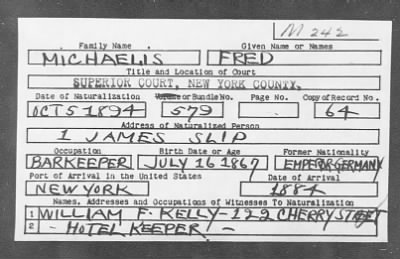 M 242
Family Name Given Name or Names
MICHAELIS FRED
Title and Location of Court
SUPERIOR COURT, NEW YORK COUNTY,
Date of Naturalization Volume or Bundle No. Page No. Copy of Record No.
OCT 5 1894 579 64
Address of Naturalized Person
1 JAMES SLIP
Occupation Birth Date or Age Former Nationality
BARKEEPER JULY 16 1867 EMPEROR GERMANY
Port of Arrival in the United States Date of Arrival
NEW YORK 1884
Names, Addresses and Occupations of Witnesses To Naturalization
1 WILLIAM F. KELLY - 122 CHERRY STREET
2 - HOTEL KEEPER -